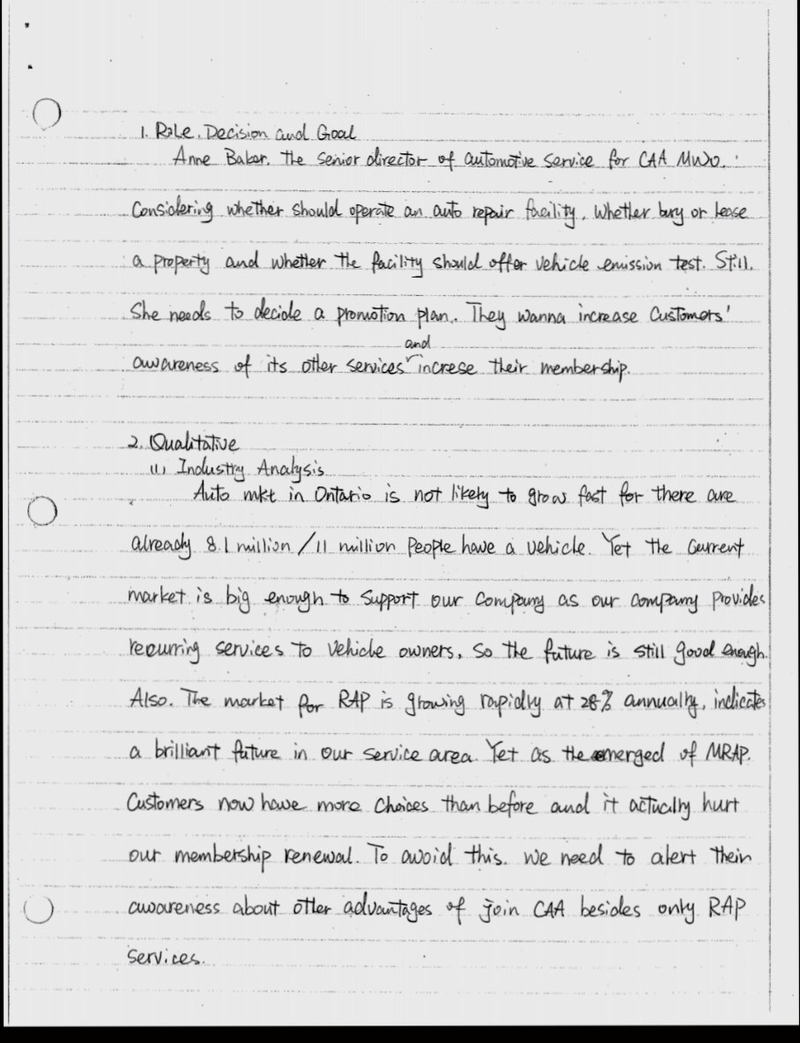 1. Role. Decision and Goal
Anne Baker. the senior director of automotive service for CAA MWO.
Considering whether should operate an auto repair facility. Whether buy or lease
a property and whether the facility should offer vehicle emission test. Still.
She needs to decide a promotion plan. They wanna increase Customers'
and
awareness of its other services increse their membership.
2. Qualitative
(1) Industry Analysis
Auto mkt in Ontario is not likely to grow fast for there are
already 8.1 million / 11 million People have a vehicle. Yet the current
market is big enough to support our company as our company provides
recurring services to vehicle owners. So the future is still good enough.
Also. The market for RAP is growing rapidly at 28% annually, indicates
a brilliant future in our service area. Yet as the emerged of MRAP.
Customers now have more choices than before and it actually hurt
our membership renewal. To avoid this. we need to alert their
awareness about other advantages of join CAA besides only RAP
services.